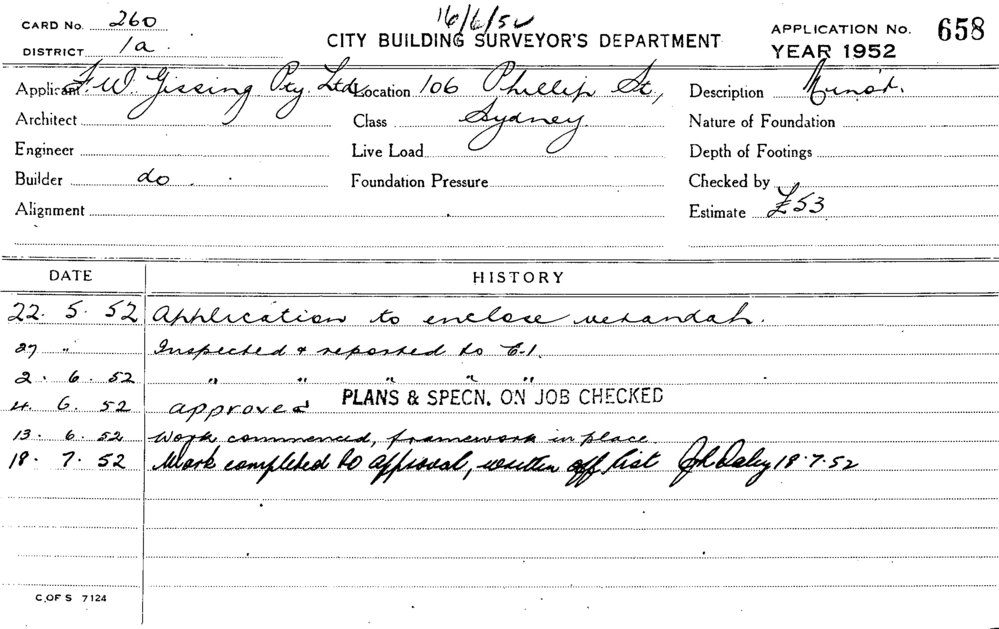 CARD No. 260
16/6/52
APPLICATION No. 658
DISTRICT 1a.
CITY BUILDING SURVEYOR'S DEPARTMENT
YEAR 1952
Applicant F. W. Gissing Pty. Ltd. Location 106 Phillip St., Description Minor.
Architect Class Sydney Nature of Foundation
Engineer Live Load Depth of Footings
Builder do. Foundation Pressure Checked by
Alignment Estimate £53
DATE HISTORY
22. 5. 52 Application to enclose verandah.
27 " Inspected & reported to C.I.
2. 6. 52 " " " " "
PLANS & SPECN. ON JOB CHECKED
4. 6. 52 approved
13. 6. 52 Work commenced, framework in place
18. 7. 52 Work completed to approval, written off list Daley 18.7.52
C. OF S 7124